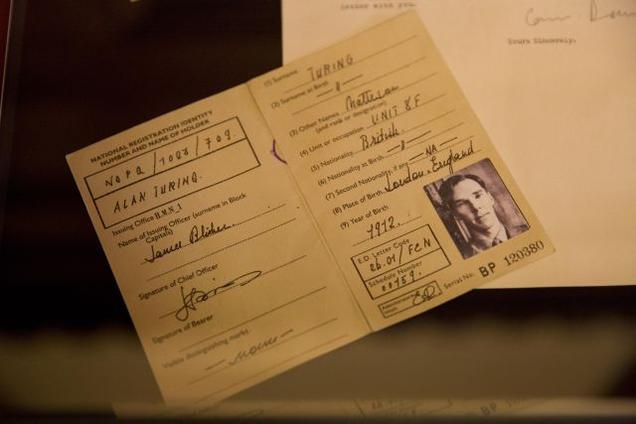 letter with you.
Yours Sincerely,
NATIONAL REGISTRATION IDENTITY
NUMBER AND NAME OF HOLDER
ALAN TURING.
Issuing Office
Name of Issuing Officer (surname in Block
Capitals)
James
Signature of Chief Officer
Signature of Bearer
Visible distinguishing marks
(1) Surname TURING
(2) Surname at Birth
(3) Other Names
(and rank or designation)
(4) Unit or occupation UNIT 8F
(5) Nationality British.
(6) Nationality at Birth
(7) Second Nationality, if any NA
(8) Place of Birth London, England
(9) Year of Birth
1912.
E.D. Letter Code
2b.01/FCN
Schedule Number
00759.
Serial No: BP 120380
BP